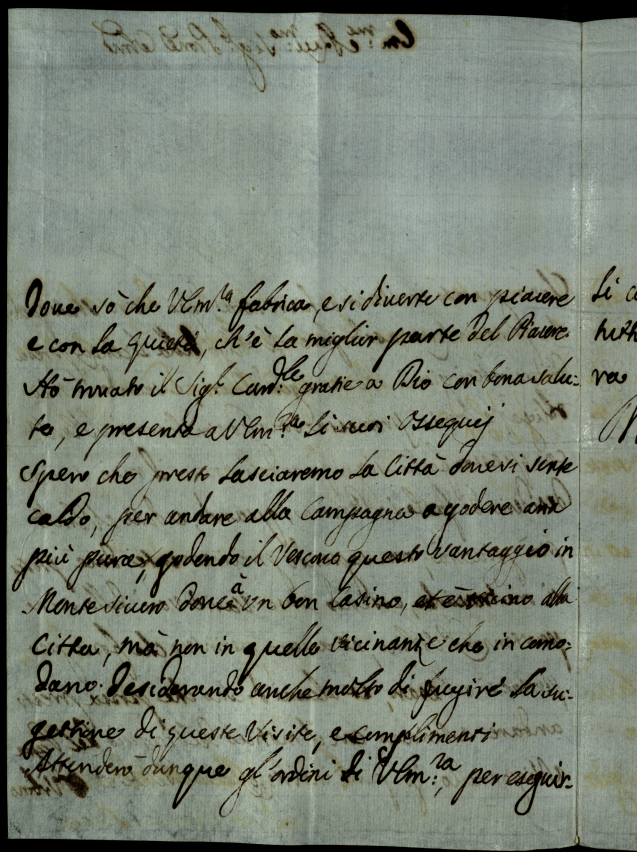 Dove sò che V Em.za fabrica, e si diverte con piacere
e con la quiete, ch'è la miglior parte del Piacere
Hò trovato il Sig.r Card.le gratie a Dio con bona salu-
te, e presenta a V Em.za li suoi ossequij
Spero che presto lasciaremo la Città dove si sente
caldo, per andare alla Campagna a godere aria
più pura, godendo il Vescovo questo vantaggio in
Monte sicuro dove à un bon Casino, et è vicino alla
Città, mà non in quelle vicinanze che incomo-
dano. Desiderando anche molto di fugire la su-
gettione di queste Visite, e complimenti
Attenderò dunque gl'ordini di V Em.za, per eseguir-
li c
tutt
va